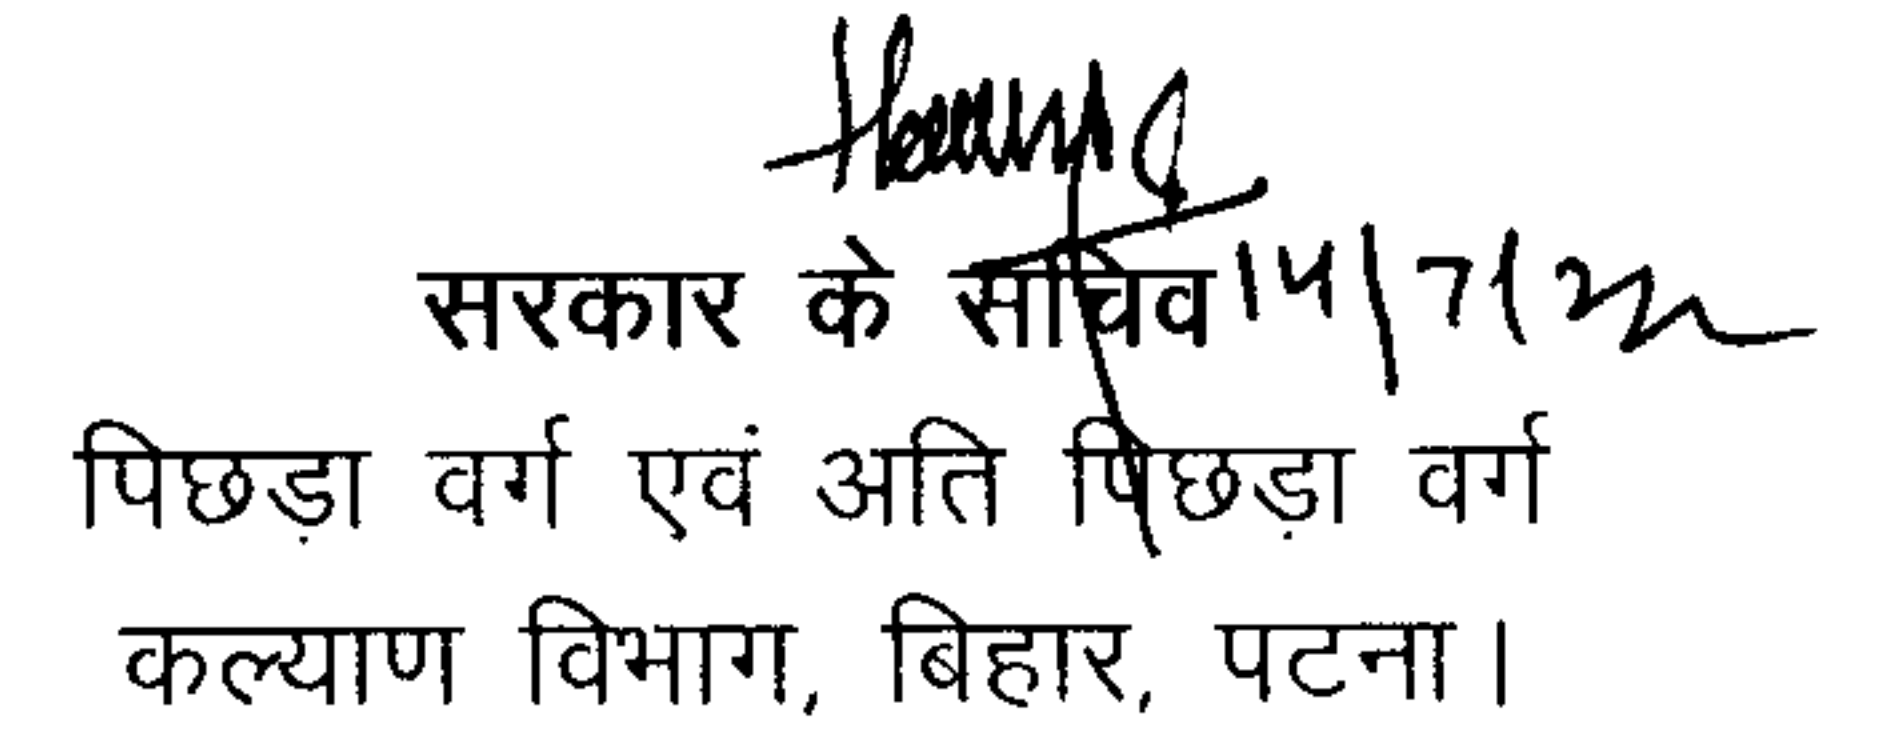 सरकार के सचिव 14/7/22
पिछड़ा वर्ग एवं अति पिछड़ा वर्ग
कल्याण विभाग, बिहार, पटना।